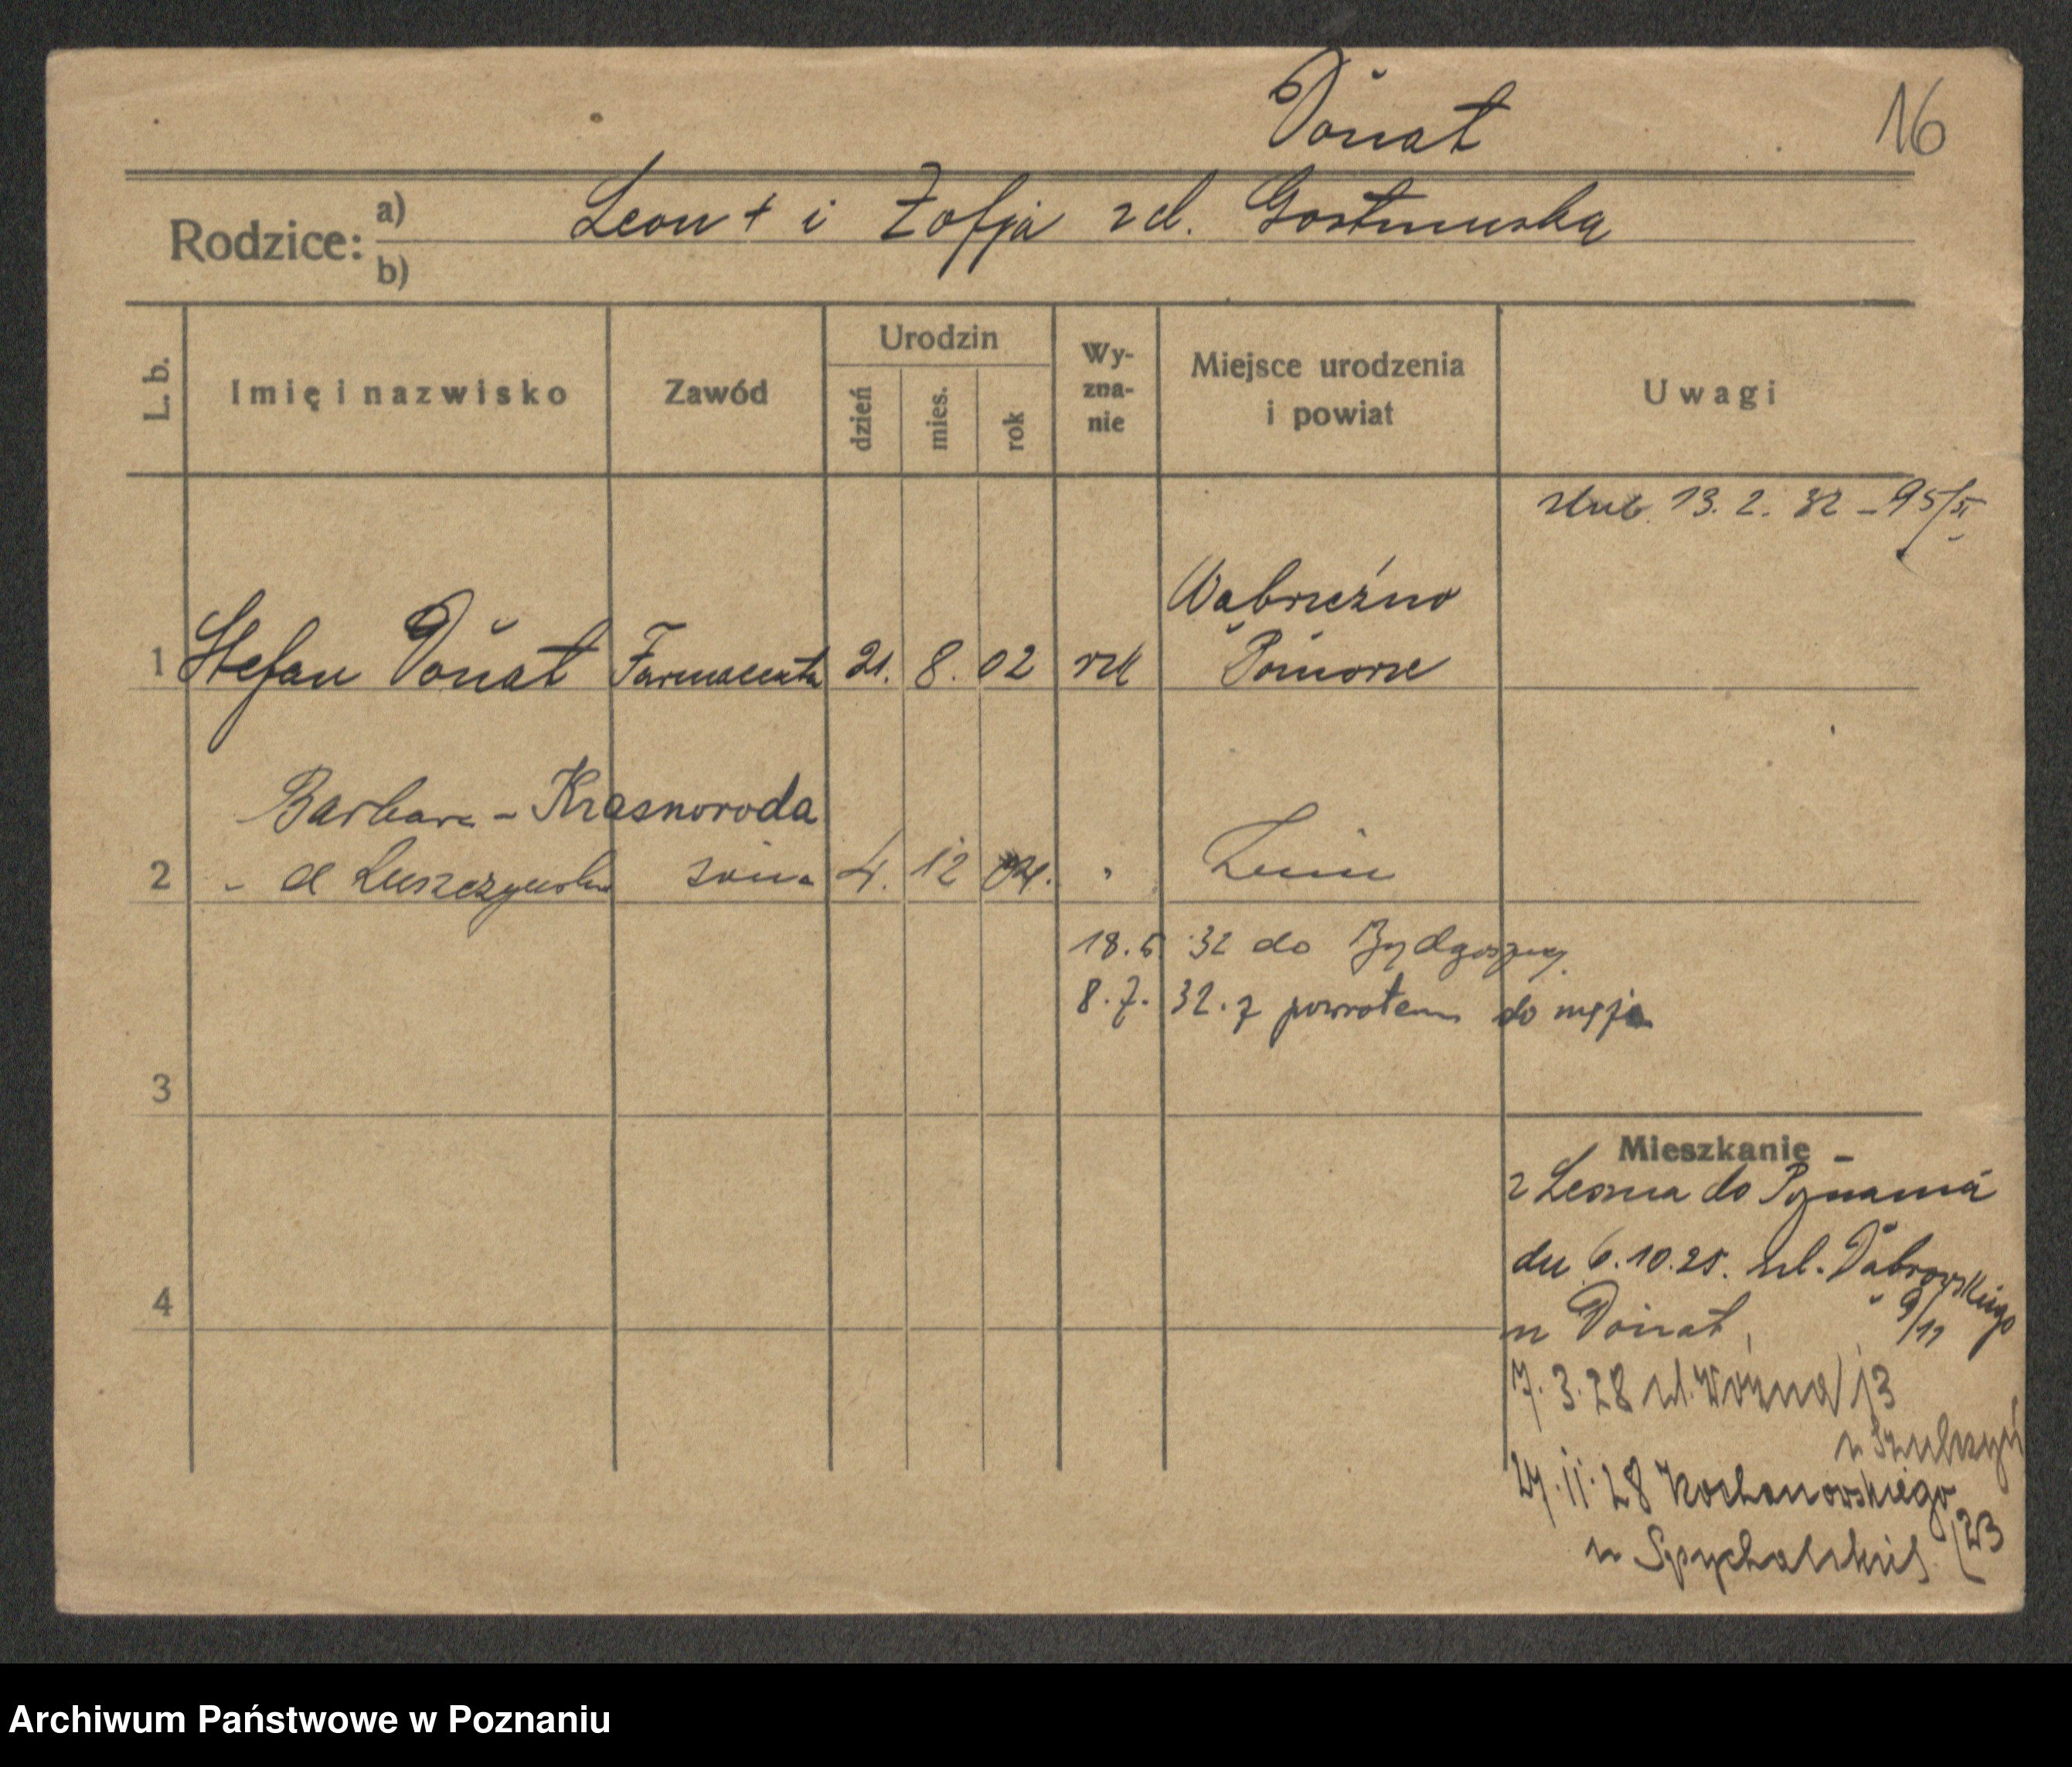 Donat
16
Rodzice: a) Leon + i Zofja zd.
b)
L. b.
Imię i nazwisko
Zawód
Urodzin
dzień
mies.
rok
Wy-
zna-
nie
Miejsce urodzenia
i powiat
Uwagi
ślub. 13. 2. 32 - 95/
Wąbrzeźno
1 Stefan Donat Farmaceuta 21. 8. 02 rzk Pomorze
Barbara - Krasnoroda
2 - d Łuszczyńska żona 4. 12 04. "
18. 5. 32 do Bydgoszczy
8. 7. 32. z powrotem do męża
3
Mieszkanie -
z Leszna do Poznania
dn 6.10.25. ul. Dąbrowskiego
4
9/11
u Donat,
7. 3. 28 ul. Woźna 13
u
27. 11. 28 Kochanowskiego
23
u Spychalskiej
Archiwum Państwowe w Poznaniu